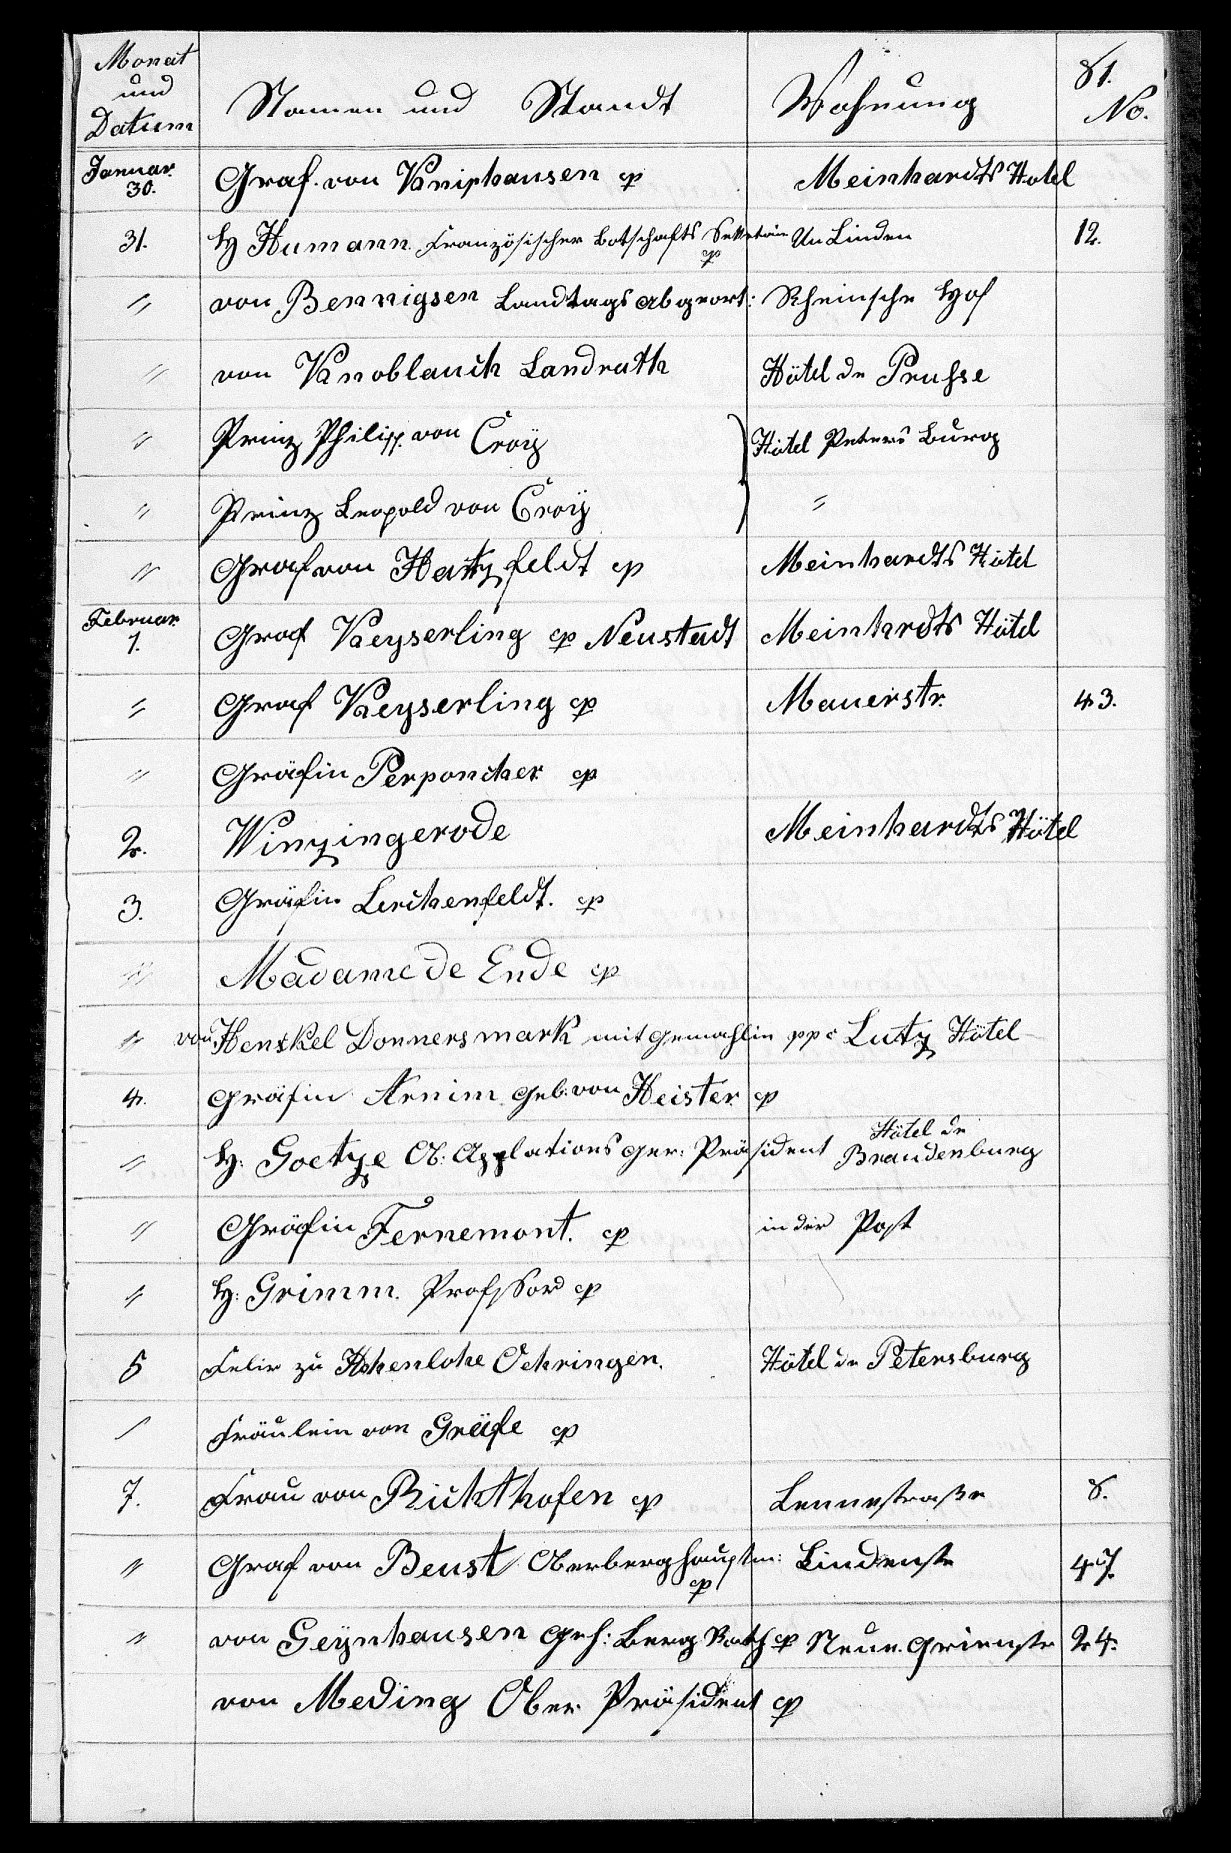 81.
Monat und Datum Namen und Standt Wohnung No.
Januar 30. Graf von Kniphausen cp Meinhardts Hotel
31. H Humann Französischer Botschafts Sekretair cp Un Linden 12.
〃 von Bennigsen Landtagsabgeort: Rheinsche Hof
〃 von Knoblauch Landrath Hôtel de Prusse
〃 Prinz Philipp von Croÿ Hôtel Peters Burg
〃 Prinz Leopold von Croÿ 〃
〃 Graf von Hatzfeldt cp Meinhardts Hôtel
Februar 1. Graf Keyserling cp Neustadt Meinhardts Hôtel
〃 Graf Keyserling cp Mauerstr. 43.
〃 Gräfin Perponcher cp
2. Winzingerode Meinhardts Hôtel
3. Gräfin Lerchenfeldt. cp
〃 Madame de Ende cp
〃 von Henckel Donnersmark mit Gemahlin ppc Lutz Hôtel
4. Gräfin Arnim geb. von Heister cp
〃 H: Goetze Ob: Applations ger: Präsident Hôtel de Brandenburg
〃 Gräfin Fernemont. cp in der Post
〃 H: Grimm. Professor cp
5 Felix zu Hohenlohe Oehringen. Hôtel de Petersburg
〃 Fräulein von Gräfe cp
7. Frau von Richthofen cp Lennestraße 8.
〃 Graf von Beust Oberberghauptm: cp Lindenstr 47.
〃 von Oeynhausen Geh: Berg Rath cp Neue. Grünstr 24.
von Meding Ober Präsident cp